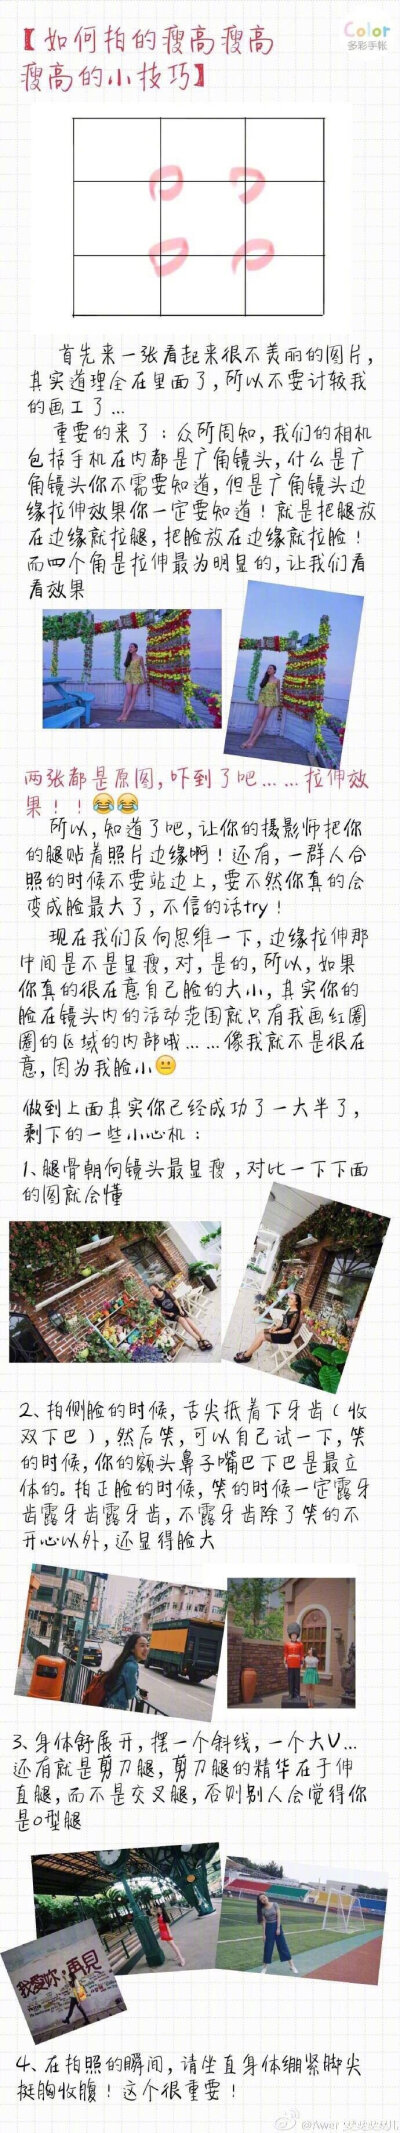 Color
多彩手帐
【如何拍的瘦高瘦高
瘦高的小技巧】
首先来一张看起来很不美丽的图片,
其实道理全在里面了,所以不要计较我
的画工了...
重要的来了:众所周知,我们的相机
包括手机在内都是广角镜头,什么是广
角镜头你不需要知道,但是广角镜头边
缘拉伸效果你一定要知道!就是把腿放
在边缘就拉腿,把脸放在边缘就拉脸!
而四个角是拉伸最为明显的,让我们看
看效果
两张都是原图,吓到了吧……拉伸效
果!!😂😂
所以,知道了吧,让你的摄影师把你
的腿贴着照片边缘啊!还有,一群人合
照的时候不要站边上,要不然你真的会
变成脸最大了,不信的话try!
现在我们反向思维一下,边缘拉伸那
中间是不是显瘦,对,是的,所以,如果
你真的很在意自己脸的大小,其实你的
脸在镜头内的活动范围就只有我画红圈
圈的区域的内部哦……像我就不是很在
意,因为我脸小😐
做到上面其实你已经成功了一大半了,
剩下的一些小心机:
1、腿骨朝向镜头最显瘦,对比一下下面
的图就会懂
2、拍侧脸的时候,舌尖抵着下牙齿(收
双下巴),然后笑,可以自己试一下,笑
的时候,你的额头鼻子嘴巴下巴是最立
体的。拍正脸的时候,笑的时候一定露牙
齿露牙齿露牙齿,不露牙齿除了笑的不
开心以外,还显得脸大
3、身体舒展开,摆一个斜线,一个大V...
还有就是剪刀腿,剪刀腿的精华在于伸
直腿,而不是交叉腿,否则别人会觉得你
是O型腿
我爱你,再見
4、在拍照的瞬间,请坐直身体绷紧脚尖
挺胸收腹!这个很重要!